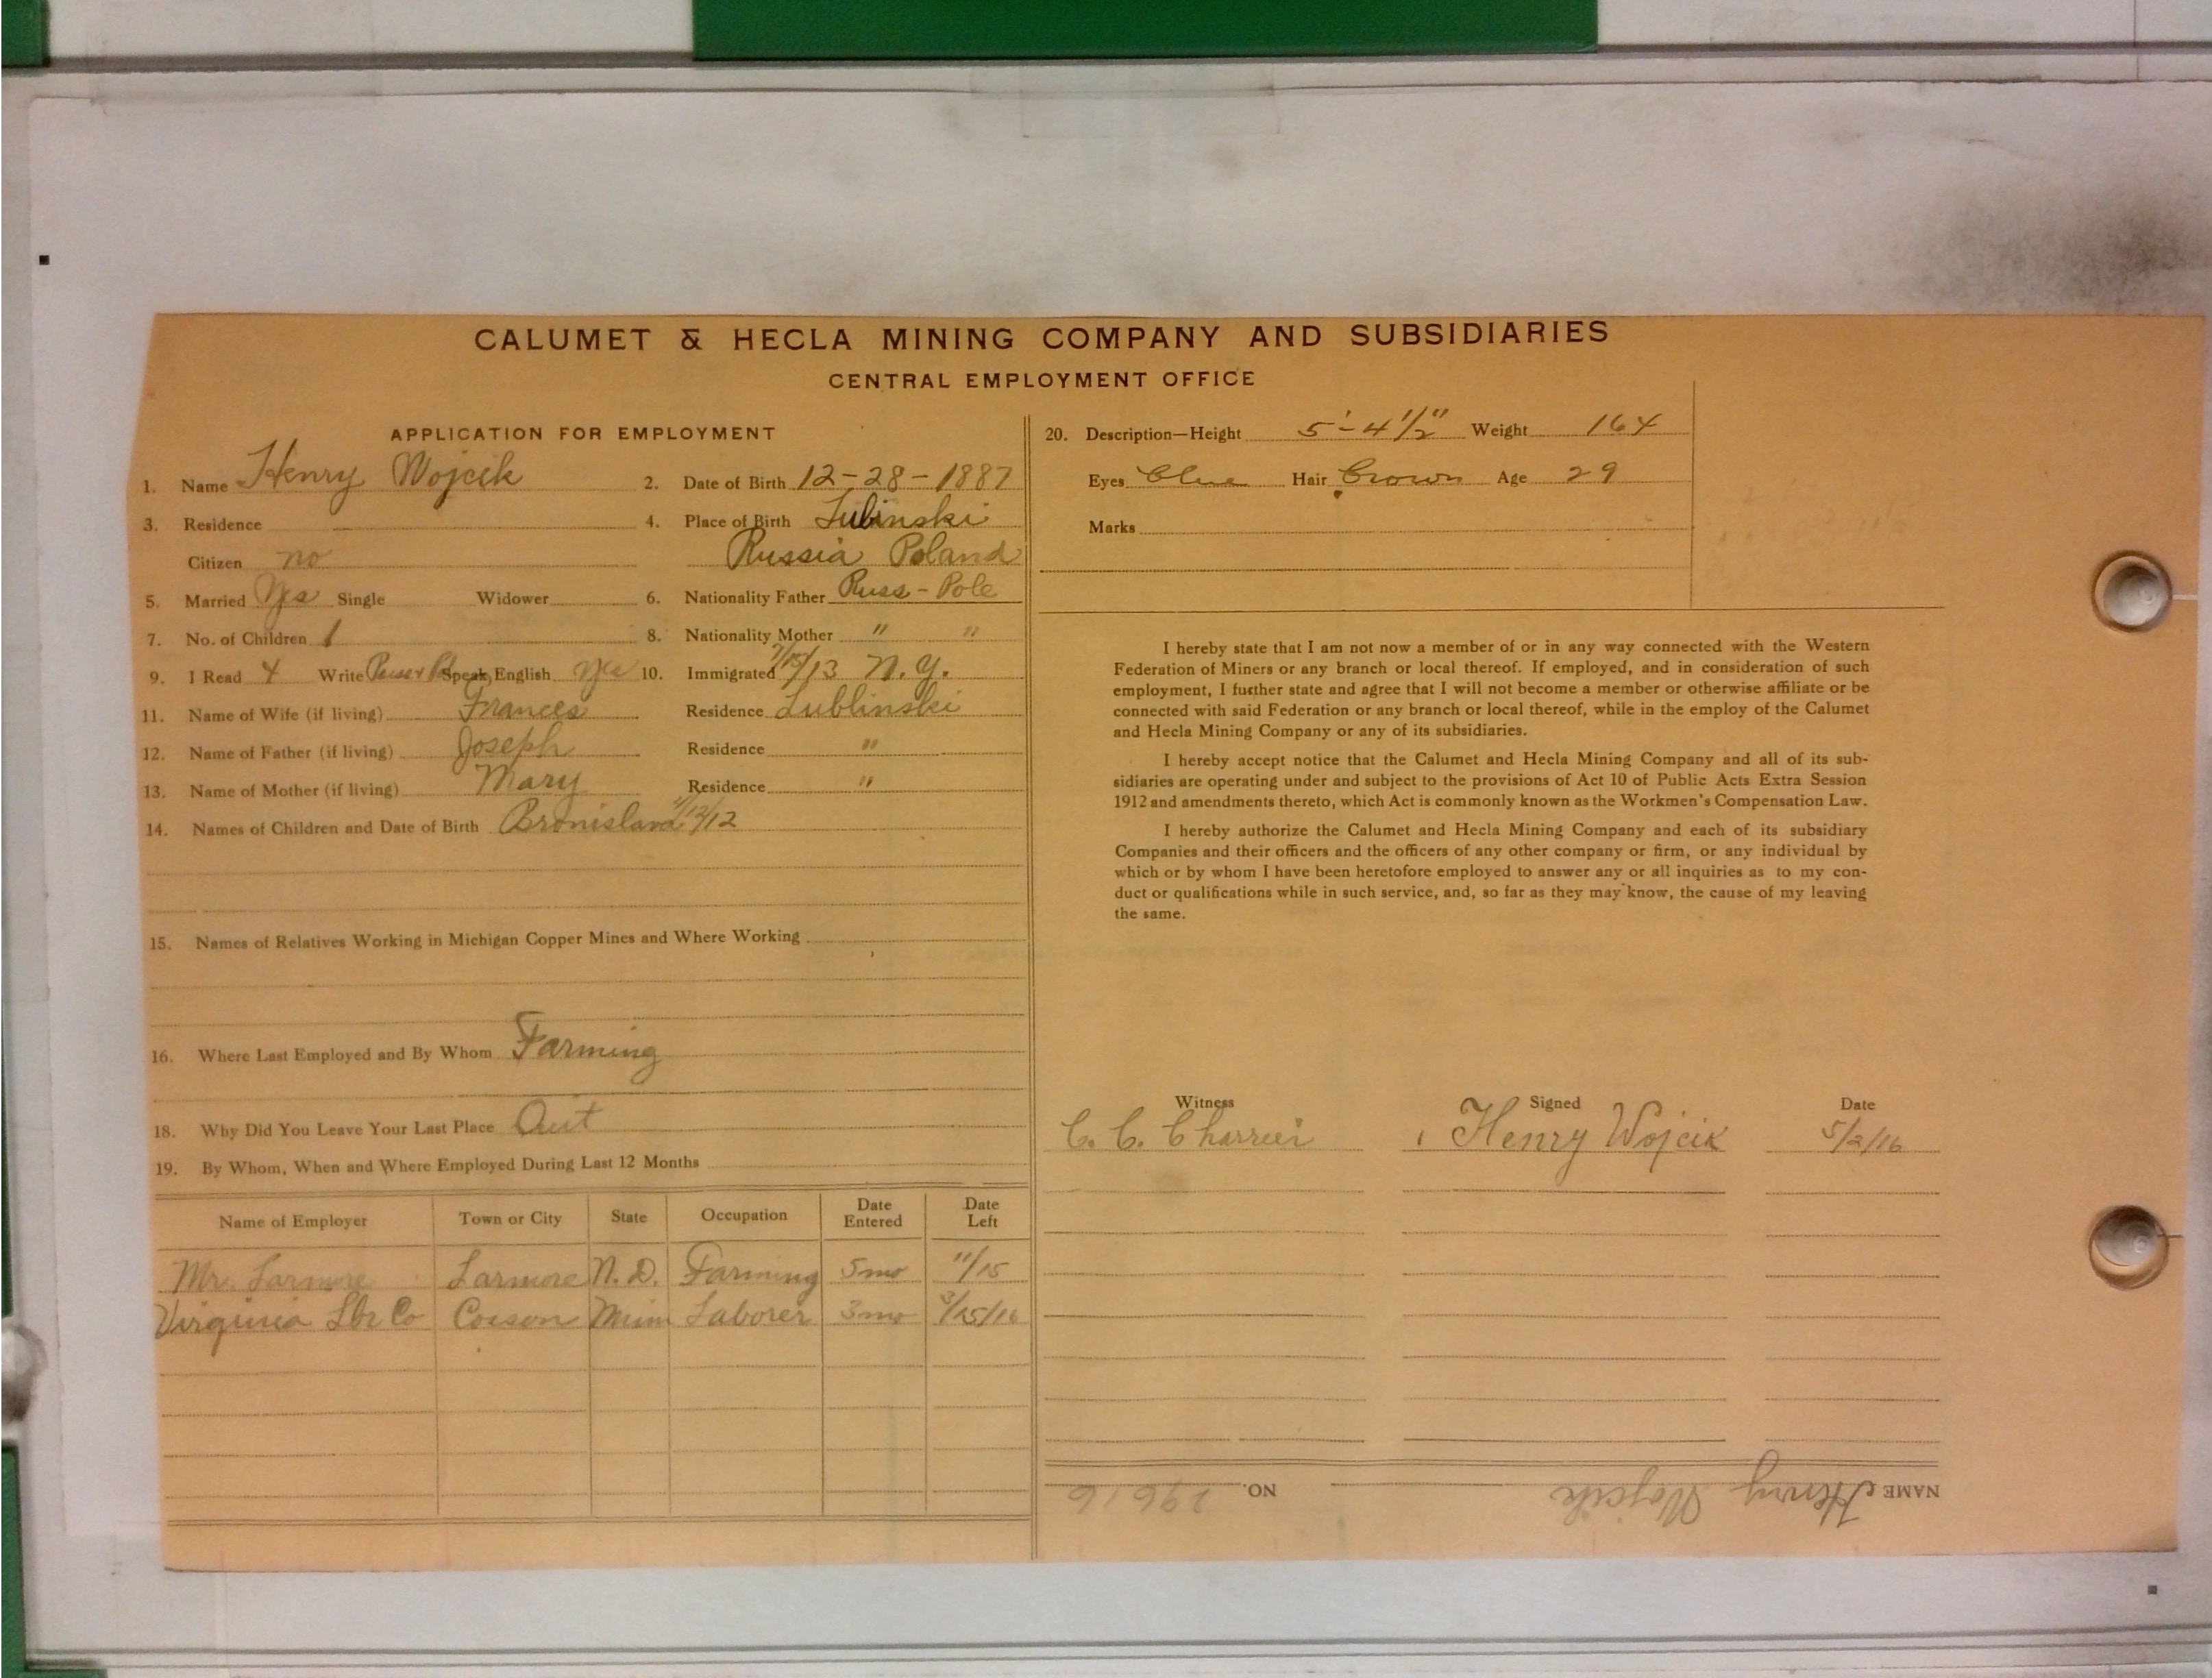 CALUMET & HECLA MINING COMPANY AND SUBSIDIARIES
CENTRAL EMPLOYMENT OFFICE
APPLICATION FOR EMPLOYMENT
1. Name Henry Wojcik 2. Date of Birth 12-28-1887
3. Residence 4. Place of Birth Lubinski
Citizen no Russia Poland
5. Married Yes Single Widower 6. Nationality Father Russ-Pole
7. No. of Children 1 8. Nationality Mother " "
9. I Read 4 Write Speak English yes 10. Immigrated 7/15/13 N.Y.
11. Name of Wife (if living) Frances Residence Lublinski
12. Name of Father (if living) Joseph Residence "
13. Name of Mother (if living) Mary Residence "
14. Names of Children and Date of Birth Bronislava /12
15. Names of Relatives Working in Michigan Copper Mines and Where Working
16. Where Last Employed and By Whom Farming
18. Why Did You Leave Your Last Place Quit
19. By Whom, When and Where Employed During Last 12 Months
Name of Employer Town or City State Occupation Date Entered Date Left
Mr. Larmore Larmore N.D. Farming 5 mo 11/15
Virginia Lbr Co Minn Laborer 3 mo 3/15/16
20. Description—Height 5'-4 1/2" Weight 164
Eyes blue Hair brown Age 29
Marks
I hereby state that I am not now a member of or in any way connected with the Western
Federation of Miners or any branch or local thereof. If employed, and in consideration of such
employment, I further state and agree that I will not become a member or otherwise affiliate or be
connected with said Federation or any branch or local thereof, while in the employ of the Calumet
and Hecla Mining Company or any of its subsidiaries.
I hereby accept notice that the Calumet and Hecla Mining Company and all of its sub-
sidiaries are operating under and subject to the provisions of Act 10 of Public Acts Extra Session
1912 and amendments thereto, which Act is commonly known as the Workmen's Compensation Law.
I hereby authorize the Calumet and Hecla Mining Company and each of its subsidiary
Companies and their officers and the officers of any other company or firm, or any individual by
which or by whom I have been heretofore employed to answer any or all inquiries as to my con-
duct or qualifications while in such service, and, so far as they may know, the cause of my leaving
the same.
Witness Signed Date
C. C. Charrier Henry Wojcik 5/2/16
NAME Henry Wojcik NO. 29616